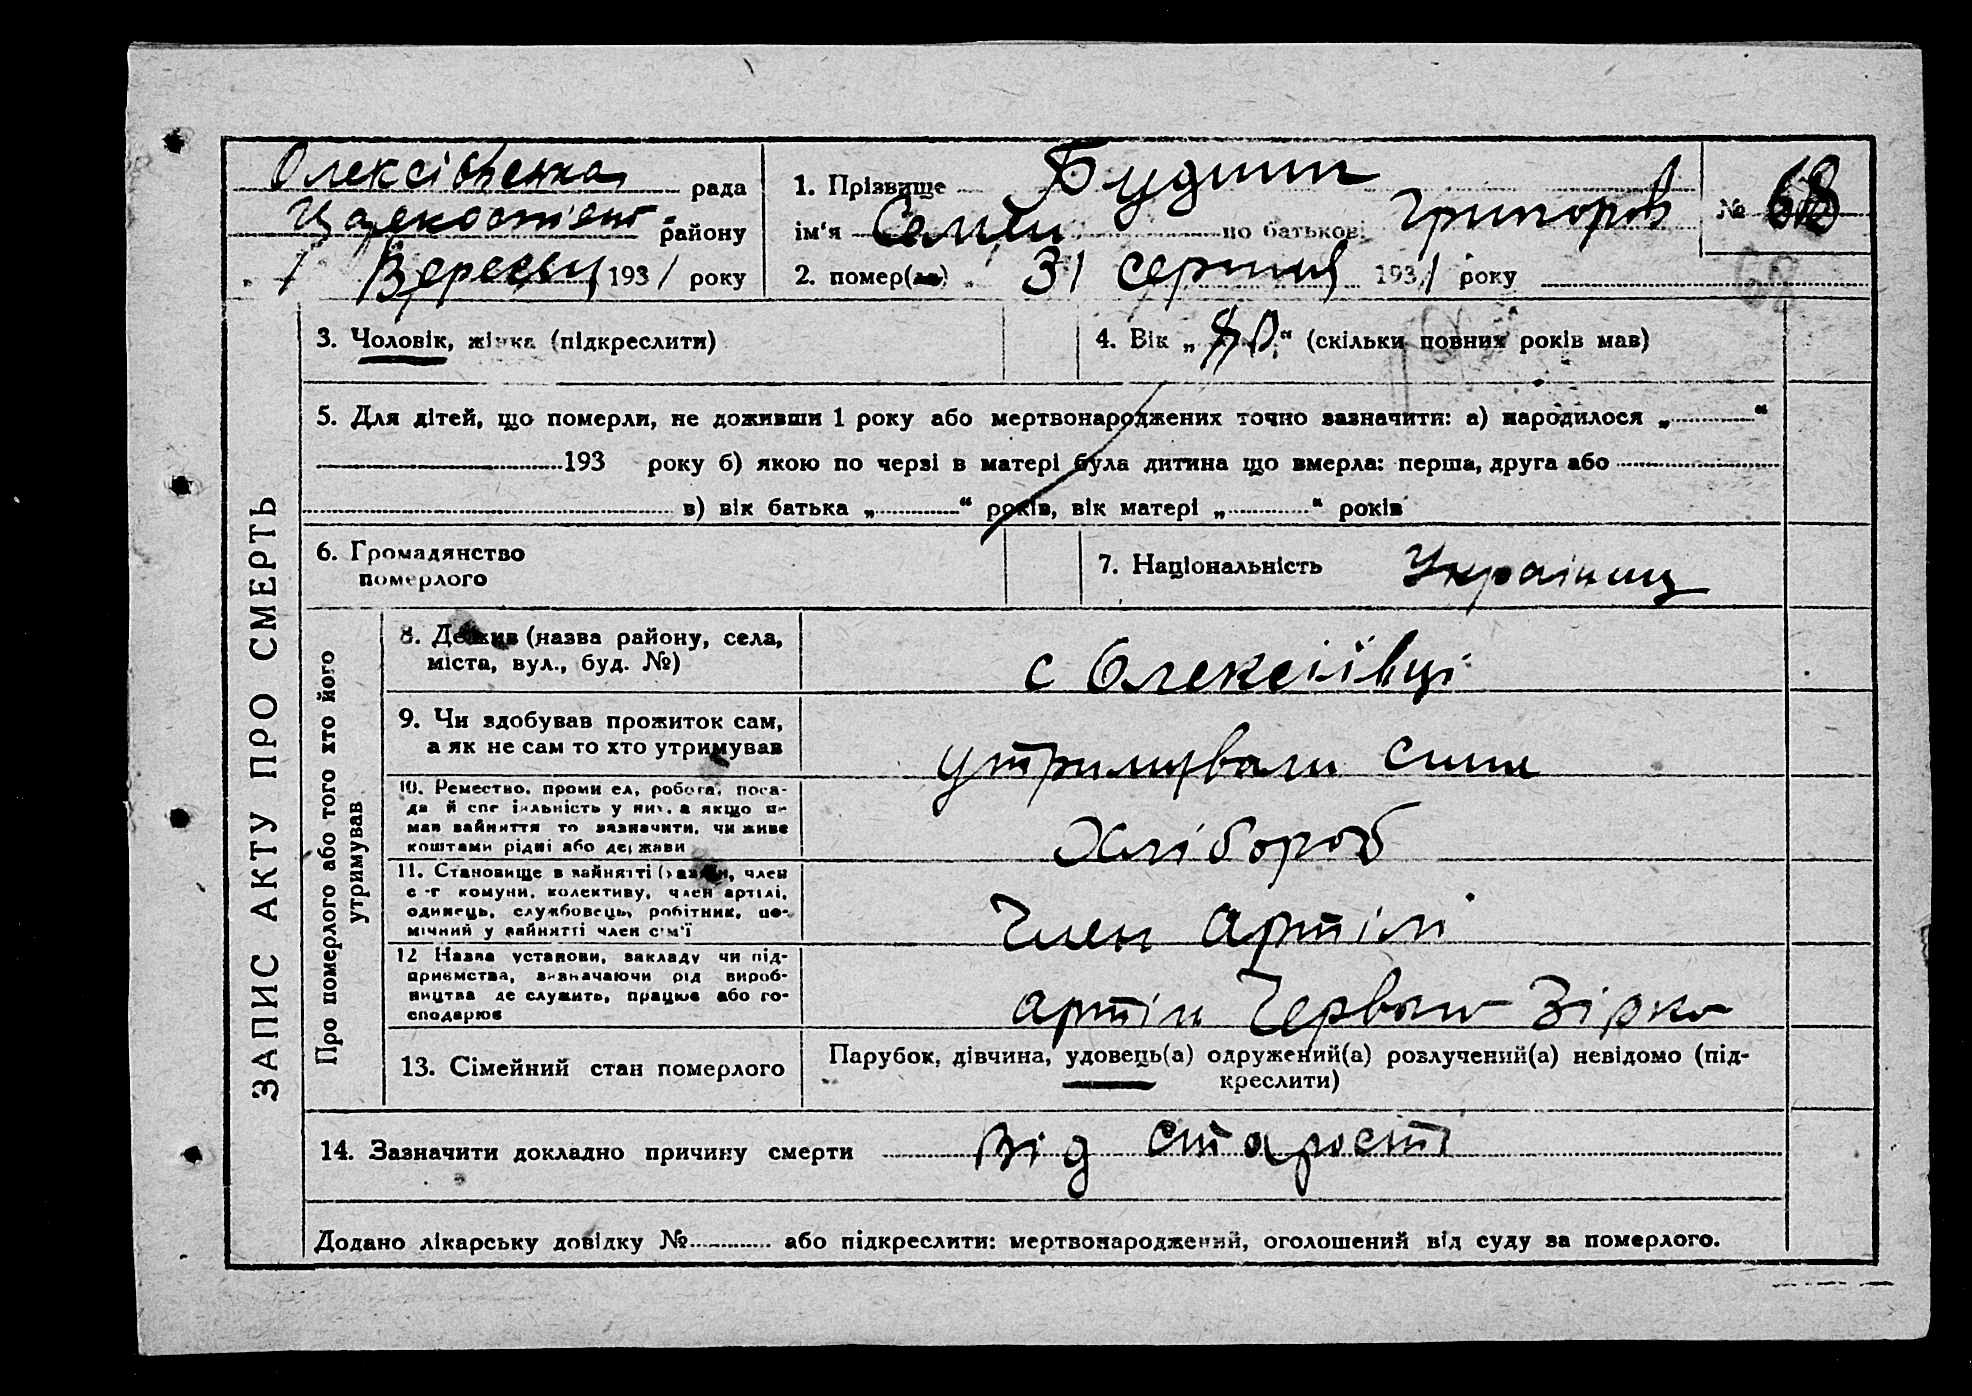 Олексіївська рада
району
1 Вересня 1931 року
1. Прізвище Будник
ім'я Семен по батькові Григоров
№ 68
2. помер(ла) 31 серпня 1931 року
68
ЗАПИС АКТУ ПРО СМЕРТЬ
3. Чоловік, жінка (підкреслити)
4. Вік „80“ (скільки повних років мав)
5. Для дітей, що померли, не доживши 1 року або мертвонароджених точно зазначити: а) народилося „ “
193 року б) якою по черзі в матері була дитина що вмерла: перша, друга або
в) вік батька „ “ років, вік матері „ “ років
6. Громадянство
померлого
7. Національність Українец
Про померлого або того хто його
утримував
8. Де жив (назва району, села,
міста, вул., буд. №)
с Олексіівці
9. Чи здобував прожиток сам,
а як не сам то хто утримував
утримували сини
10. Ремество, проми ел, робота, поса-
да й спе іяльність у них, а якщо не
мав зайняття то зазначити, чи живе
коштами рідні або держави
Хлібороб
11. Становище в зайнятті (хазяїн, член
с-г комуни, колективу, член артілі,
одинець, службовець, робітник, по-
мічний у зайнятті член сім'ї
Член артілі
12 Назва установи, закладу чи під-
приємства, визначаючи рід вироб-
ництва де служить, працює або го-
сподарює
артіль Червона Зірка
13. Сімейний стан померлого
Парубок, дівчина, удовець(а) одружений(а) розлучений(а) невідомо (під-
креслити)
14. Зазначити докладно причину смерти від старости
Додано лікарську довідку № або підкреслити: мертвонароджений, оголошений від суду за померлого.